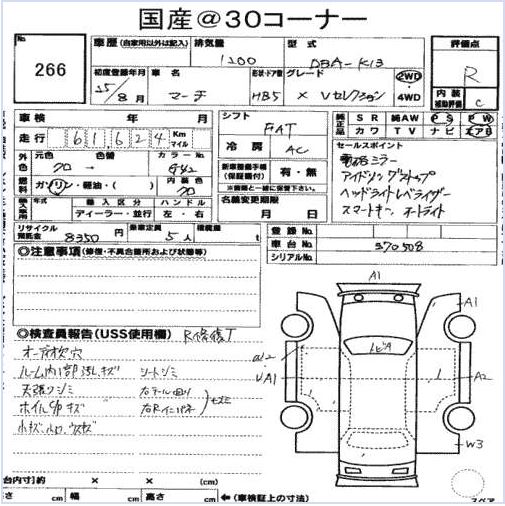 国産@30コーナー
No.
266
車歴(自家用以外は記入)
排気量
1200
型式
DBA-K13
評価点
R
初度登録年月
25年8月
車名
マーチ
形状・ドア数
HB5
グレード
X Vセレクション
2WD
4WD
内装
補助評価
C
車検 年 月
シフト
FAT
純正品
SR 純AW PS PW
カワ TV ナビ エアB
走行
61,624
Km
マイル
冷房
AC
セールスポイント
電格ミラー
アイドリングストップ
ヘッドライトレベライザー
スマートキー オートライト
外色
元色
クロ
色替
カラーNo.
G42
新車整備手帳
(保証書付)
有・無
(※商談と一緒に保管下さい)
燃料
ガソリン・軽油・( )
内装色
クロ
名義変更期限
月 日
輸入車用
年式
輸入区分
ディーラー・並行
ハンドル
左・右
登録No.
リサイクル
預託金
8350円
乗車定員
5人
積載量
t
車台No.
370508
シリアルNo.
◎注意事項(修復・不具合箇所および状態等)
◎検査員報告(USS使用欄)
R修復T
オーディオ欠穴
ルーム内1部汚レキズ シートシミ
天張りシミ
ホイルC/Pキズ
小キズ
A1
A1
A2
W3
トビA
台内寸)約 × × (cm)
さ cm 幅 cm 高さ cm
←(車検証上の寸法)
スペア